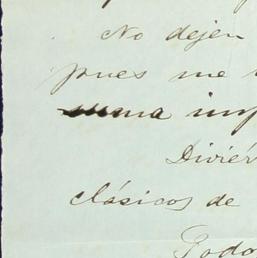 No dejen
pues me
suma imp
Diviér
clásicos de
Godo